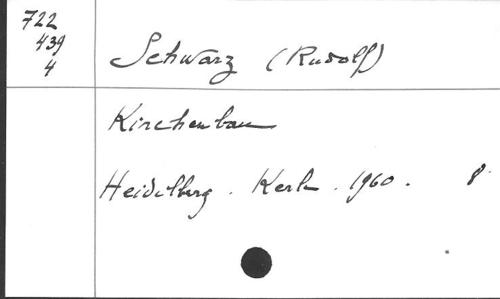 722
439
4
Schwarz (Rudolf)
Kirchenbau
Heidelberg. Kerle. 1960. 8